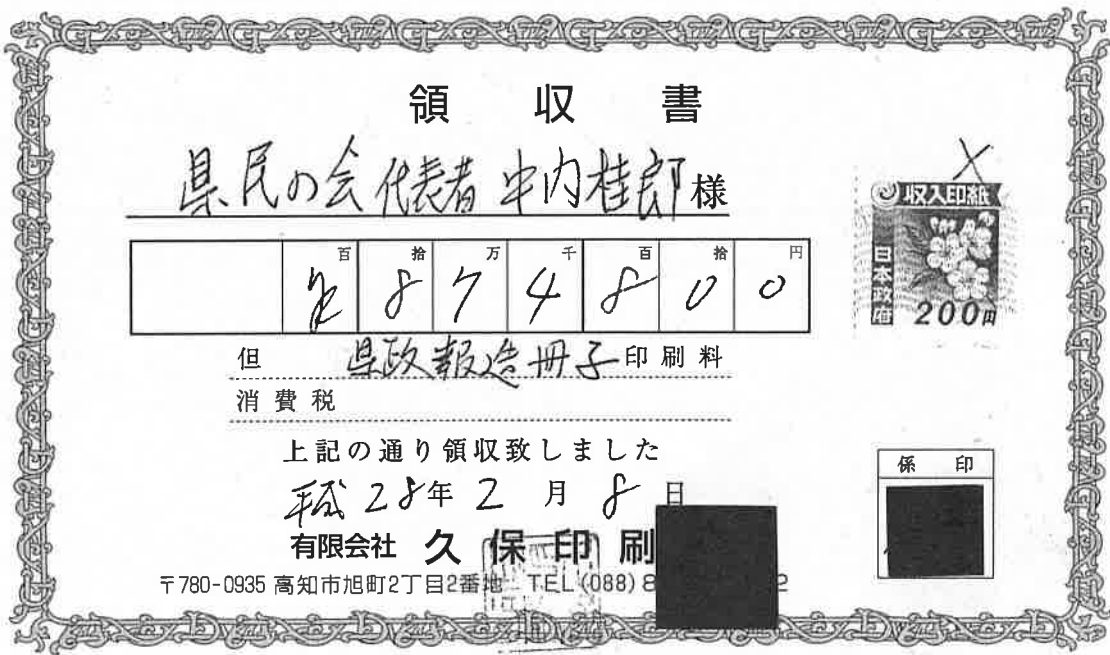 領収書
県民の会 代表者 中内桂郎 様
収入印紙
日本政府
200円
百 拾 万 千 百 拾 円
8 7 4 8 0 0
但 県政報告冊子印刷料
消費税
上記の通り領収致しました
平成28年2月8日
係印
有限会社 久保印刷
〒780-0935 高知市旭町2丁目2番地 TEL(088)8 2